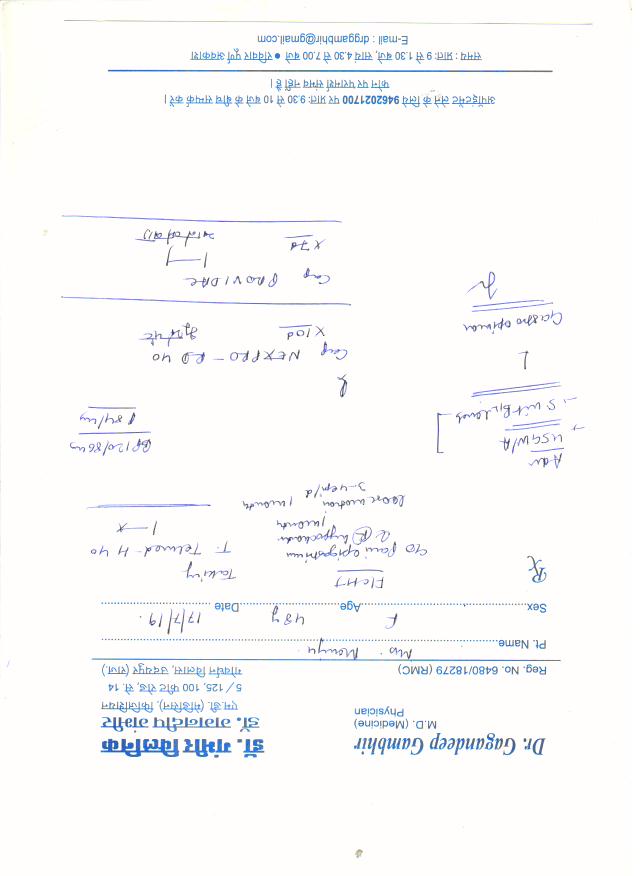 Dr. Gagandeep Gambhir
M.D. (Medicine)
Physician
Reg. No. 6480/18279 (RMC)
डॉ. गंभीर क्लिनिक
डॉ. गगनदीप गंभीर
एम.डी. (मेडिसिन), फिजिशियन
5/125, 100 फीट रोड़, से. 14
गोवर्धन विलास, उदयपुर (राज.)
Pt. Name Mrs. Manju
Sex F Age 48y Date 17/7/19.
Rx
F/c HT
Taking
T. Telmed-H 40
1—x
c/o Pain epigastrium
& (R) hypochondri
1 month
loose motion 1 month
3-4 epi/d
Adv
→ USG W/A
→ S Vit B12 Levels
Gastro opinion
BP 120/86
P 84/
Rx
Cap NEXPRO-RD 40
X 10d
Cap PROVIDAC
1—1
X 7d
अपॉइंटमेंट लेने के लिये 9462021700 पर प्रातः 9.30 से 10 बजे के बीच सम्पर्क करें |
फोन पर परामर्श संभव नहीं है |
समय : प्रातः 9 से 1.30 बजे, सायं 4.30 से 7.00 बजे • रविवार पूर्ण अवकाश
E-mail : drggambhir@gmail.com